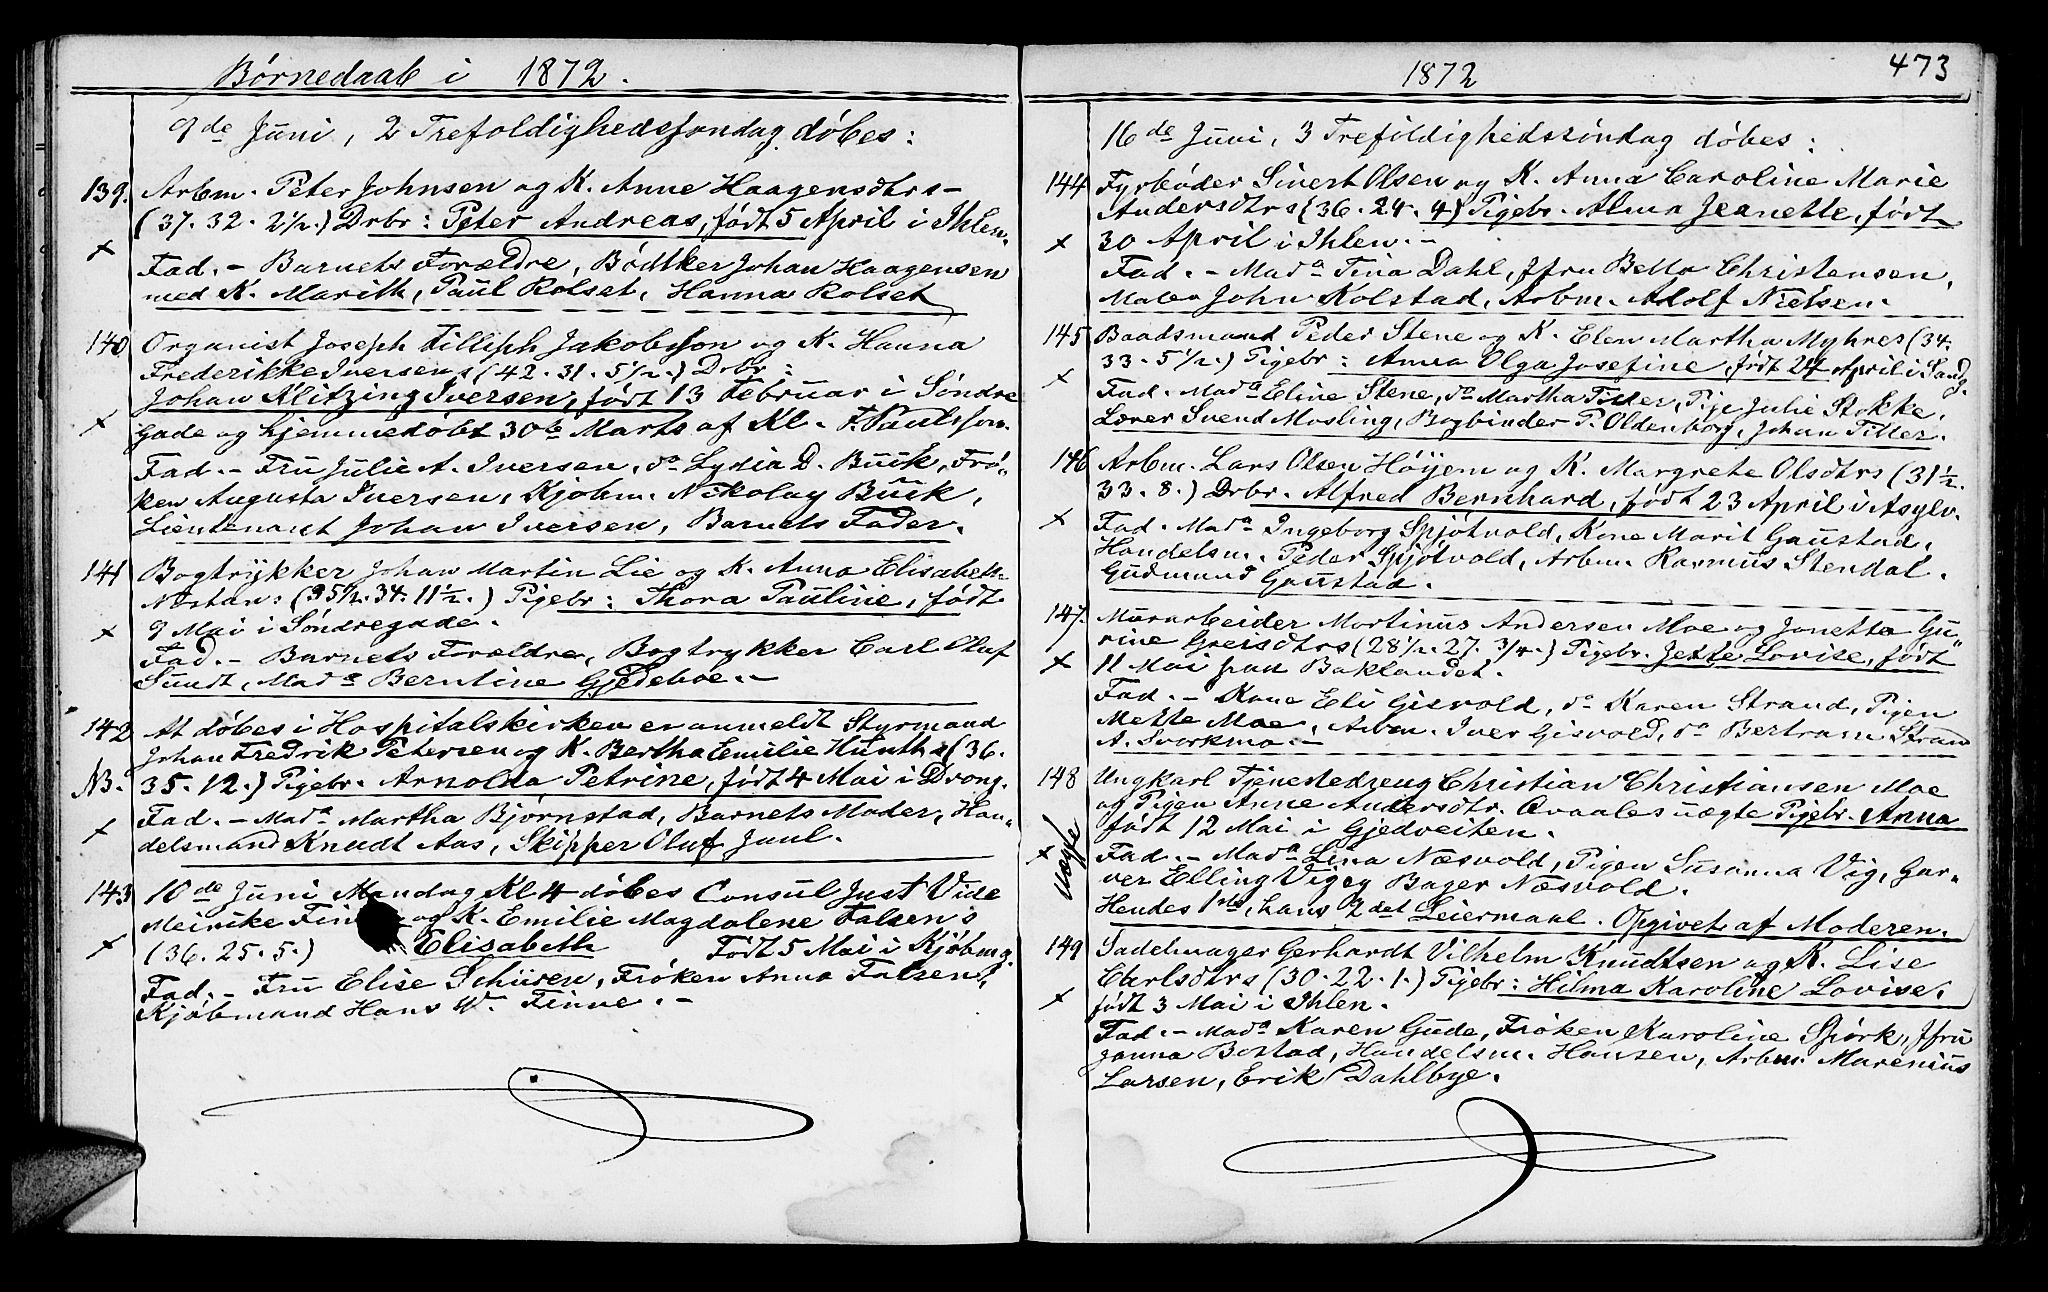 Børnedaab i 1872.
9de Juni, 2 Trefoldighedssøndag døbes:
139. Arbm. Peter Johnsen og K. Anne Haagensdtrs-
(37. 32. 2½.) Drbr: Peter Andreas, født 5 April i Ihlen.
x
Fad. - Barnets Forældre, Bødtker Johan Haagensen
med K. Marith, Paul Rolset, Hanna Rolset
140 Organist Joseph Filliph Jakobsson og K. Hanna
Frederikke Iversens (42. 31. 5½.) Drbr:
Johan Klitzing Iversen, født 13 Februar i Søndre
x
gade og hjemmedøbt 30te Marts af Kl. F. Paulsson.
Fad. - Fru Julie A. Iversen, do Lydia D. Buck, Frø"
ken Augusta Iversen, Kjøbm. Nikolay Buck,
Lieutenant Johan Iversen, Barnets Fader.
141 Bogtrykker Johan Martin Lie og K. Anna Elisabeth
Næstans (35½. 34. 11½.) Pigebr: Thora Pauline, født
9 Mai i Søndregade.
x
Fad. - Barnets Forældre, Bogtrykker Carl Oluf
Sundt, Mada Berntine Gjedeboe. -
142 At døbes i Hospitalskirken er anmeldt Styrmand
Johan Fredrik Petersen og K. Bertha Emilie Hunths (36.
N3. 35. 12.) Pigebr. Arnolda Petrine, født 4 Mai i Drong.
x
Fad. - Mada Martha Bjørnstad, Barnets Moder, Han-
delsmand Knudt Aas, Skipper Oluf Juul.
143 10de Juni Mandag Kl 4 døbes Consul Just Vide
Meinike Finne og K. Emilie Magdalene Falsen's
x (36. 25. 5.) Elisabeth Født 5 Mai i Kjøbmg.
Fad. - Fru Elise Schüren, Frøken Anna Falsen,
Kjøbmand Hans Wm Finne. -
1872
473
16de Juni, 3 Trefoldighedssøndag døbes:
144 Fyrbøder Sivert Olsen og K. Anna Caroline Marie
Andersdtrs (36. 24. 4) Pigebr. Alma Jeanette, født
x 30 April i Ihlen. -
Fad. - Mada Tina Dahl, Jfru Betta Christensen,
Maler John Kolstad, Arbm. Adolf Nielsen.
145 Baadsmand Peder Stene og K. Elen Martha Myhres (34.
33. 5½.) Pigebr: Anna Olga Josefine, født 24 April i Sandg.
x
Fad. Mada Eline Stene, do Martha Tiller, Pige Julie Stokke,
Lærer Svend Mosling, Bogbinder P. Oldenborg, Johan Tiller.
146 Arbm. Lars Olsen Høyem og K. Margrete Olsdtrs (31½.
33. 8.) Drbr. Alfred Bernhard, født 23 April i Asylv.
x
Fad. Mada Ingeborg Spjøtvold, Kone Marit Gaustad,
Handelsm. Peder Spjøtvold, Arbm. Rasmus Stendal.
Gudmund Gaustad.
147. Murarbeider Martinus Andersen Moe og Janetta Gu"
rine Greisdtrs (28½. 27. 3/4.) Pigebr. Jette Lovise, født
x 11 Mai paa Baklandet.
Fad. - Kone Eli Gisvold, do Karen Strand, Pigen
Mette Moe, Arbm. Iver Gisvold, do Bertram Strand
A. Svorkmo. -
148 Ungkarl Tjenestedreng Christian Christiansen Moe
og Pigen Anne Andersdtr. Qvaales uægte Pigebr. Anna
født 12 Mai i Gjedveiten.
x Uægte
Fad. - Mada Lina Næsvold, Pigen Susanna Vig, Gar-
ver Elling Vig og Bager Næsvold.
Hendes 1ste, hans 2det Leiermaal. Opgivet af Moderen.
149 Sadelmager Gerhardt Vilhelm Knudtsen og K. Lise
Carlsdtrs (30. 22. 1.) Pigebr: Hilma Karoline Lovise,
x født 3 Mai i Ihlen.
Fad. - Mada Karen Gude, Frøken Karoline Spørk, Jfru
Janna Bostad, Handelsm. Hansen, Arbm. Marenius
Larsen, Erik Dahlbye.